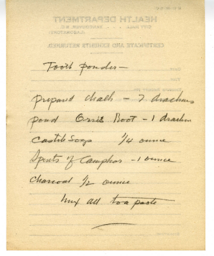 Tooth powder —
prepared chalk — 7 drachms
powd Orris Root — 1 drachm
Castile Soap 1/4 ounce
Spruts of Camphor — 1 ounce
Charcoal 1/2 ounce
Mix all to a paste